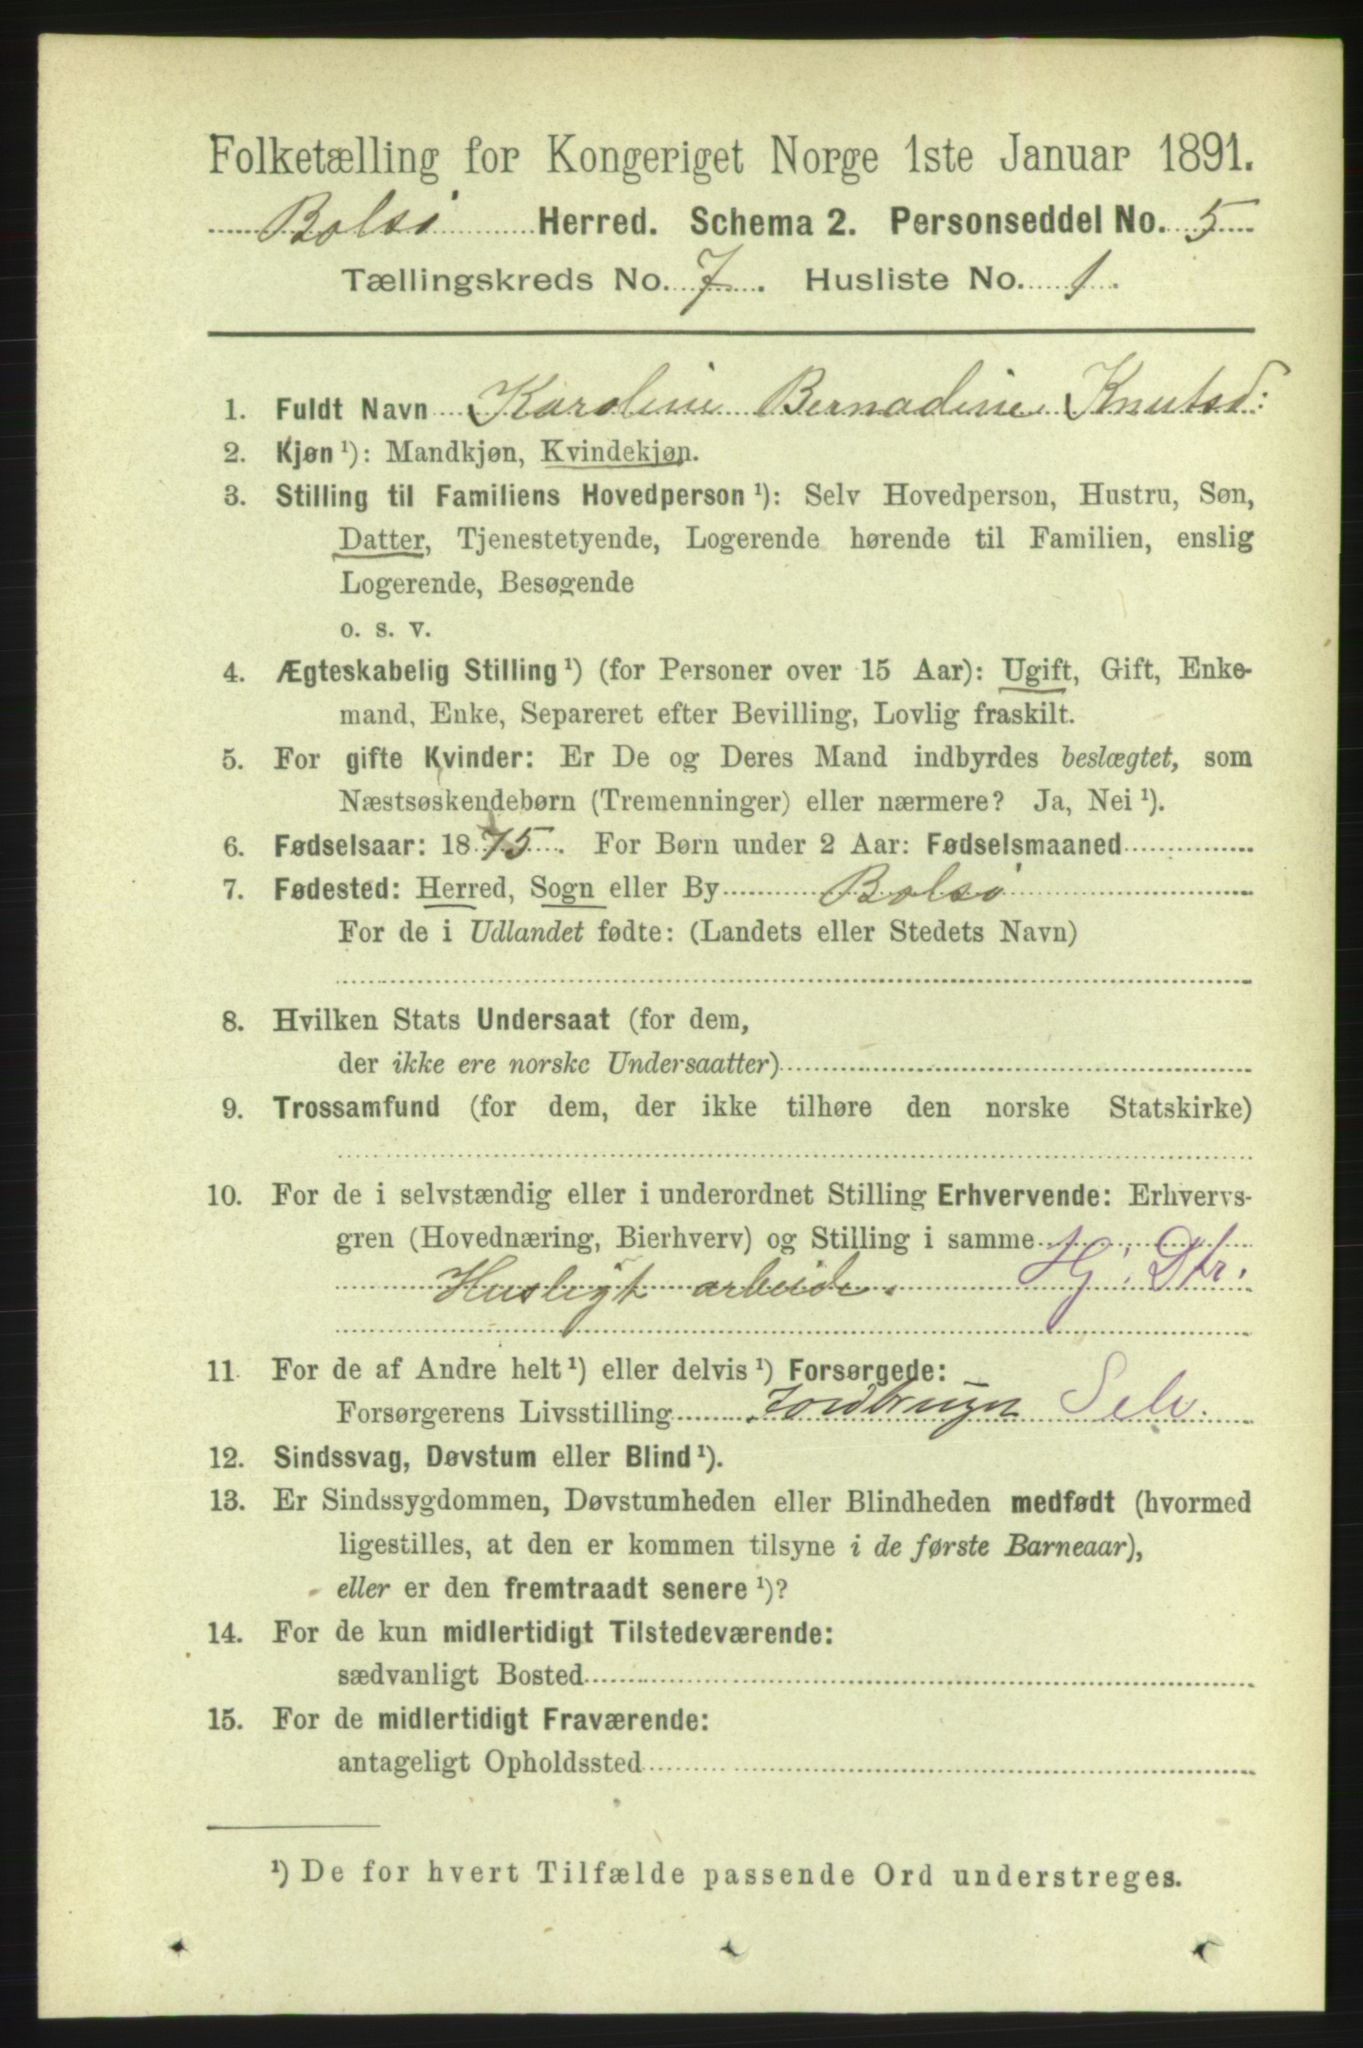 Folketælling for Kongeriget Norge 1ste Januar 1891.
Bolsø Herred. Schema 2. Personseddel No. 5
Tællingskreds No. 7. Husliste No. 1.
1. Fuldt Navn Karoline Bernadine Knutsd:
2. Kjøn ¹): Mandkjøn, Kvindekjøn.
3. Stilling til Familiens Hovedperson ¹): Selv Hovedperson, Hustru, Søn,
Datter, Tjenestetyende, Logerende hørende til Familien, enslig
Logerende, Besøgende
o. s. v.
4. Ægteskabelig Stilling ¹) (for Personer over 15 Aar): Ugift, Gift, Enke-
mand, Enke, Separeret efter Bevilling, Lovlig fraskilt.
5. For gifte Kvinder: Er De og Deres Mand indbyrdes beslægtet, som
Næstsøskendebørn (Tremenninger) eller nærmere? Ja, Nei ¹).
6. Fødselsaar: 1875. For Børn under 2 Aar: Fødselsmaaned
7. Fødested: Herred, Sogn eller By Bolsø
For de i Udlandet fødte: (Landets eller Stedets Navn)
8. Hvilken Stats Undersaat (for dem,
der ikke ere norske Undersaatter)
9. Trossamfund (for dem, der ikke tilhøre den norske Statskirke)
10. For de i selvstændig eller i underordnet Stilling Erhvervende: Erhvervs-
gren (Hovednæring, Bierhverv) og Stilling i samme
Husligt arbeide. Hj. Dtr.
11. For de af Andre helt ¹) eller delvis ¹) Forsørgede:
Forsørgerens Livsstilling Jordbruger Selv.
12. Sindssvag, Døvstum eller Blind ¹).
13. Er Sindssygdommen, Døvstumheden eller Blindheden medfødt (hvormed
ligestilles, at den er kommen tilsyne i de første Barneaar),
eller er den fremtraadt senere ¹)?
14. For de kun midlertidigt Tilstedeværende:
sædvanligt Bosted
15. For de midlertidigt Fraværende:
antageligt Opholdssted
¹) De for hvert Tilfælde passende Ord understreges.